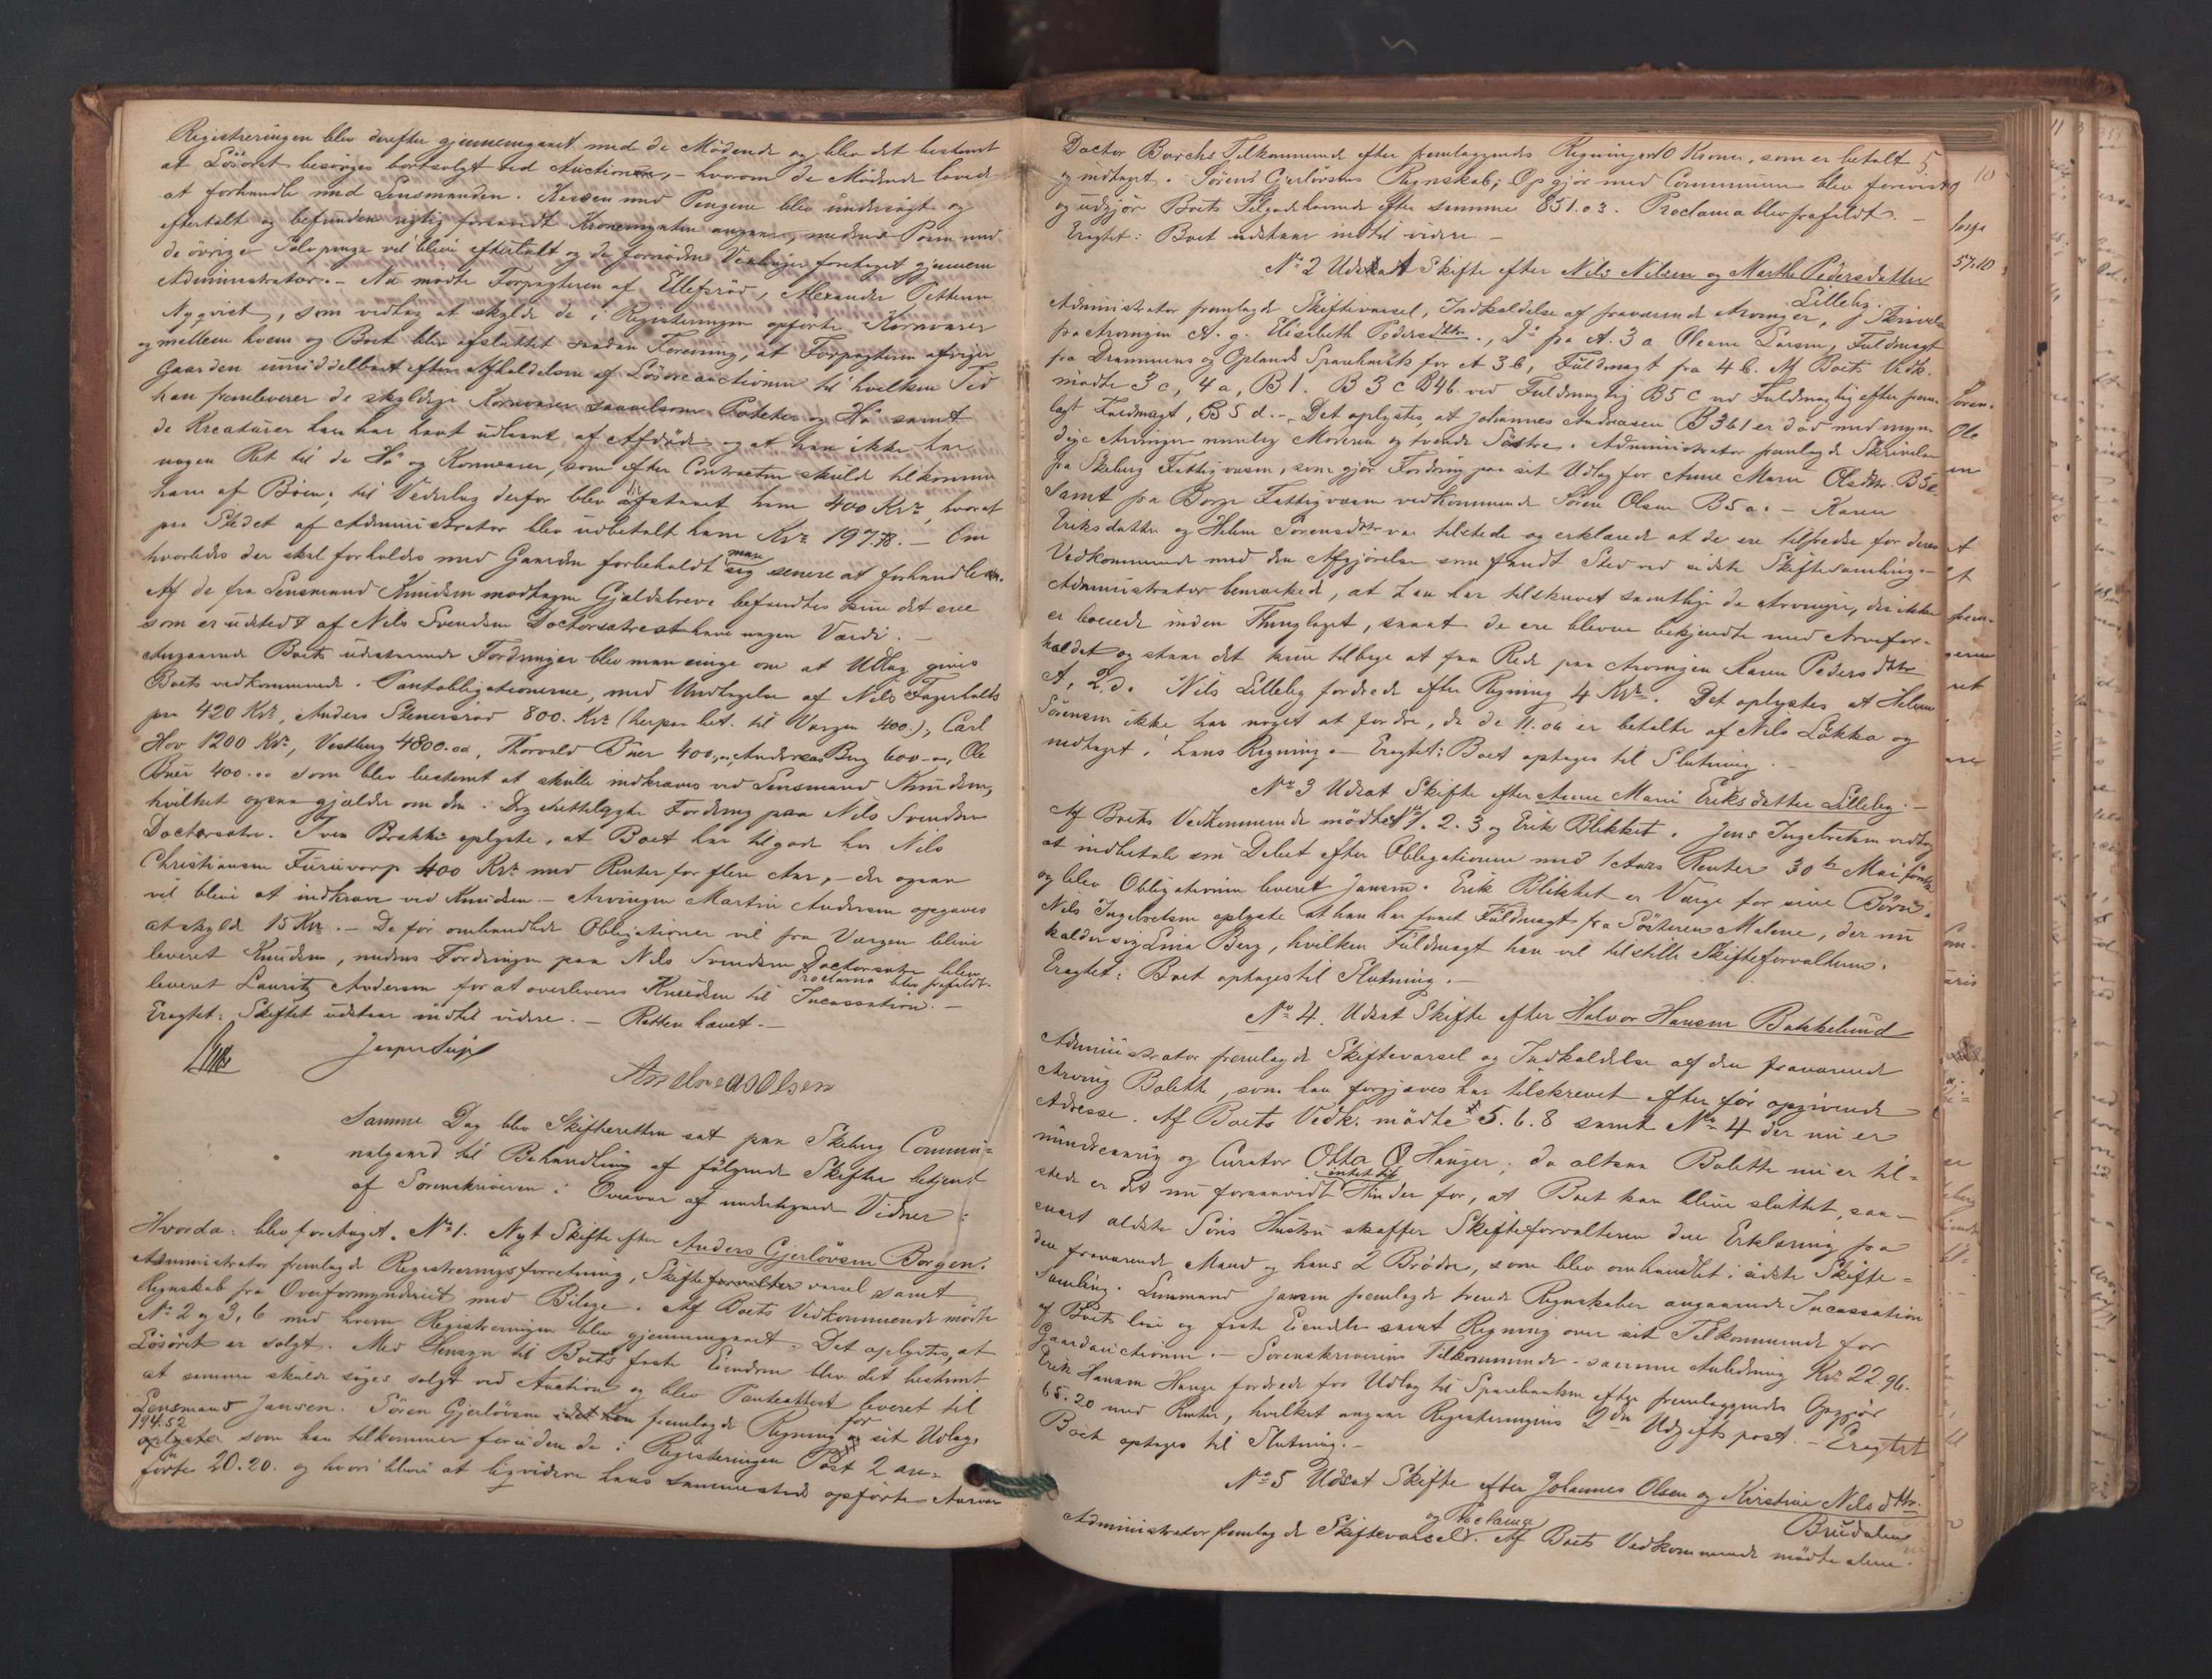 Registreringen blev derefter gjennemgaaet med de Mödende og blev det bestemt
at Lösöret besörges bortsolgt ved Auctionen, - hvorom de Mödende lovede
at forhandle med Lensmanden. Kassen med Pengene blev undersögt og
eftertalt og befunden rigtig forsaavidt Kronemynten angaar, medens Posen med
de övrige Sölvpenge vil blive eftertalt og de fornödne Vexlinger foretaget gjennem
Administrator. - Nu mödte Forpagteren af Ellefsröd, Alexander Petterson
Nyqvist, som vedtog at skylde de i Registeringen opförte Kornvarer
og mellem hvem og Boet blev afsluttet saadan Forening, at Forpagteren afviger
Gaarden umiddelbart efter Afholdelsen af Lösöreauctionen til hvilken Tid
han fremleverer de skyldige Kornvarer saavelsom Poteter og Hö samt
de Kreaturer han har havt udlaant af Afdöde og at han ikke har
nogen Ret til de Hö og Kornvarer, som efter Contracten skulde tilkomme
ham af Böen; til Vederlag derfor blev afstaaet ham 400 Kr., hvoraf
paa Stedet af Administrator blev udbetalt ham Kr. 197.78. - Om
hvorledes der skal forholdes med Gaarden forbeholdt man sig senere at forhandle.
Af de fra Lensmand Knudsen modtagne Gjældsbreve befandtes kun det ene
som er udstedt af Nils Svendsen Doctorsætre at have nogen Værdi. -
Angaaende Boets udestaaende Fordringer blev man enige om at Udlæg gives
Boets vedkommende. Pantobligationerne, med Undtagelse af Nils Fagerholts
paa 420 Kr., Anders Stenersröd 800. Kr. (herpaa bet. til Værgen 400.), Carl
Hov 1200 Kr., Vestberg 4800.00, Thorvald Buer 400, Andreas Bug 600, Ole
Buer 400.00 som blev bestemt at skulle indkræves ved Lensmand Knudsen,
hvilket ogsaa gjælder om den. Fordring paa Nils Svendsen
Doctorsætre. Iver Brække oplyste, at Boet har tilgode hos Nils
Christiansen Furuvarp 400 Kr. med Renter for flere Aar, - der ogsaa
vil blive at indkræve ved Knudsen. - Arvingen Martin Andersen opgaves
at skylde 15 Kr. - De för omhandlede Obligationer vil fra Værgen blive
leveret Knudsen, medens Fordringen paa Nils Svendsen Doctorsætre blev
leveret Lauritz Andersen for at overleveres Knudsen til Incassation. - Proclama blev frafaldt.
Eragtet: Skiftet udstaar indtil videre. - Retten hævet. -
Andreas Olsen
Samme Dag blev Skifteretten sat paa Skeberg Commu-
nalgaard til Behandling af fölgende Skifter betjent
af Sorenskriveren i Overvær af undertegnede Vidner:
Hvorda: blev foretaget. No 1. Nyt Skifte efter Anders Gjerlövsen Borgen.
Administrator fremlagde Registreringsforretning, Skifteforvalter varsel samt
Regnskab fra Overformynderiet med Bilage. Af Boets Vedkommende mödte
No 2 og 3, 6 med hvem Registreringen blev gjennemgaaet. Det oplystes, at
Lösöret er solgt. Med Hensyn til Boets faste Eiendom blev det bestemt
at samme skulde söges solgt ved Auction og blev Panteattest leveret til
Lensmand Jansen. Sören Gjerlövsen idet han fremlagde Regning for sit Udlæg,
194.52
oplyste som han tilkommer foruden de i Registeringen Post 2 an-
förte 20.20. og hvori blive at liqvidere hans sammesteds opförte Ansvar
Doctor Borchs Tilkommende efter fremlæggende Regninger 10 Kroner, som er betalt 5
og indtaget. Sörens Gjerlövsens Regnskab; Opgjör med Communen blev forevist
og udgjör Boets Tilgodehavende efter samme 851.03. Proclama blev frafaldt. -
Eragtet: Boet udstaar indtil videre. -
No 2 Udsat Skifte efter Nils Nilsen og Marthe Pedersdatter
Lilleby.
Administrator fremlagde Skiftevarsel, Indkaldelse af fraværende Arvinger, Skrivelse
fra Arvingen A. 9. Elisabeth Pedersdtr., Do fra A. 3 a Oleane Larsen, Fuldmagt
fra Drammens og Oplands Sparebank for A 3 b, Fuldmagt fra 4 b. Af Boets Vedk.
mödte 3 c, 4 a, B 1. B 3 c B 4 b. ved Fuldmægtig B 5 c ved Fuldmægtig efter frem-
lagt Fuldmagt, B 5 d. - Det oplystes, at Johannes Andreasen B 3 b 1 er död med myn-
dige Arvinger nemlig Moderen og tvende Söstre. Administrator fremlagde Skrivelse
fra Skeberg Fattigvæsen, som gjör Fordring paa sit Udlæg for Anne Marie Olsdtr. B 5 e.
samt fra Borge Fattigvæsen vedkommende Sören Olsen B 5 a. - Karen
Eriksdatter og Helene Sörensdtr var tilstede og erklærede at de ere tilfredse for deres
Vedkommende med den Afgjörelse som fandt Sted ved sidste Skiftesamling. -
Administrator bemærkede, at han har tilskrevet samtlige de Arvinger, der ikke
er boende inden Thinglaget, saaat de ere blevne bekjendte med Arvefor-
holdet og staar det kun tilbage at faa Rede paa Arvingen Karen Pedersdtr
A. 2. d. Nils Lilleby fordrede efter Regning 4 Kr. Det oplystes at Helene
Sörensen ikke har noget at fordre, da de 11.06 er betalte af Nils Lökka og
indtaget i hans Regning. - Eragtet: Boet optages til Slutning. -
No 3 Udsat Skifte efter Anne Marie Eriksdatter Lilleby. -
Af Boets Vedkommende mödte No 1. 2. 3 og Erik Blikket. Jens Ingebretsen vedtog
at indbetale sin Debet efter Obligationen med 1 Aars Renter 30te Mai förstk.
og blev Obligationen leveret Jansen. Erik Blikket er Værge for sine Börn.
Nils Ingebretsen oplyste at han har faaet Fuldmagt fra Sösteren Malene, der nu
kalder sig Lina Berg, hvilken Fuldmagt han vil tilstille Skifteforvalteren.
Eragtet: Boet optages til Slutning. -
No 4. Udsat Skifte efter Halvor Hansen Bakkelund
Administrator fremlagde Skiftevarsel og Indkaldelse af den fraværende
Arving Bolette, som han forgjæves har tilskrevet efter för opgivende
Adresse. Af Boets Vedk. mödte 5. 6. 8 samt No 4 der nu er
mindreaarig og Curator Otto O Hauger; da altsaa Bolette nu er til-
stede er det nu forsaavidt intet til Hinder for, at Boet kan blive sluttet, saa-
snart ældste Söns Hustru skaffer Skifteforvalteren den Erklæring fra
den fraværende Mand og hans 2 Brödre, som blev omhandlet i sidste Skifte-
samling. Lensmand Jansen fremlagde tvende Regnskaber angaaende Incassation
af Boets löse og faste Eiendele samt Regning over sit Tilkommende for
Gaardauctionen. - Sorenskriverens Tilkommende i samme Anledning Kr. 22.96.
Erik Hansen Hauge fordrede for Udlæg til Sparebanken efter fremlæggende Opgjör
65.20 med Renter, hvilket angaar Registeringens 2den Udgiftspost. - Eragtet
Boet optages til Slutning. -
No 5 Udsat Skifte efter Johannes Olsen og Kirstine Nilsdtr.
Brudalen
Administrator fremlagde Skiftevarsel og Proclama. Af Boets Vedkommende mödte alene